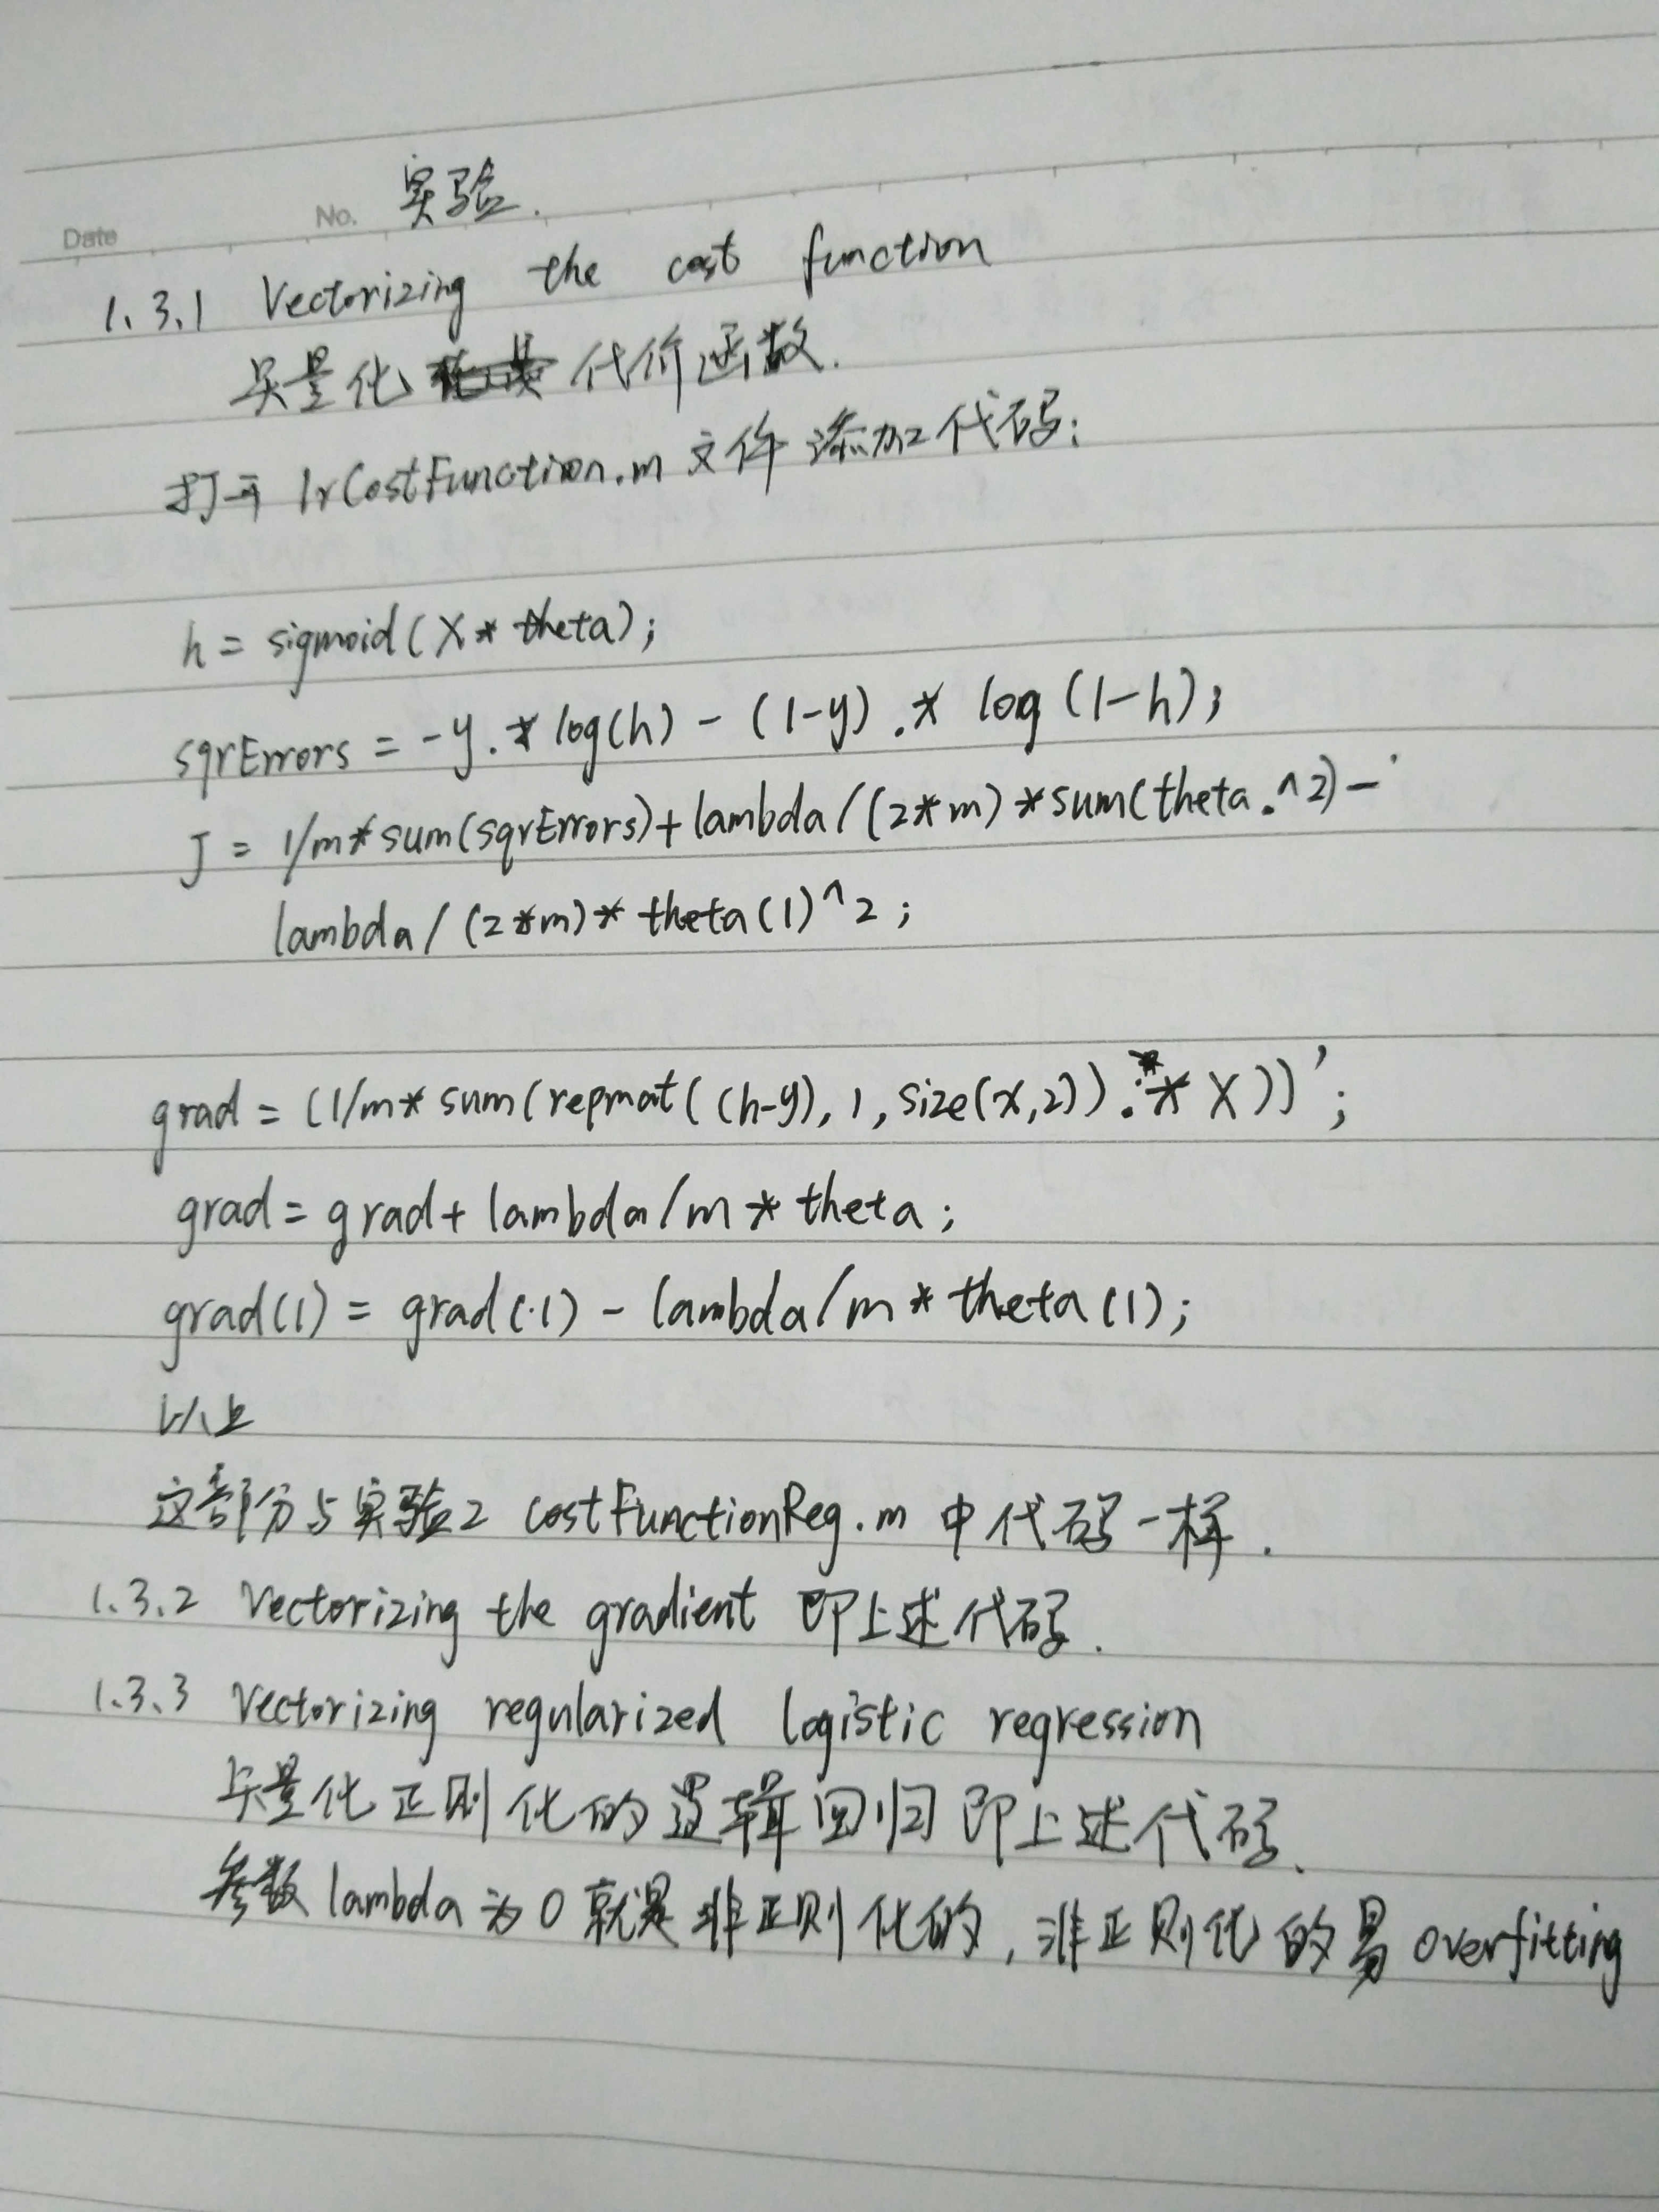 Date No. 实验.
1.3.1 Vectorizing the cost function
矢量化 代价函数.
打开 lrCostFunction.m 文件 添加代码:
h = sigmoid(X * theta);
sqrErrors = -y.* log(h) - (1-y) .* log (1-h);
J = 1/m* sum(sqrErrors)+lambda/(2*m)*sum(theta.^2)-
lambda/(2*m)* theta(1)^2;
grad = (1/m* sum(repmat((h-y),1,size(x,2)).* X))';
grad = grad+ lambda/m * theta;
grad(1) = grad(1) - lambda/m * theta(1);
以上
这部分与实验2 costFunctionReg.m 中代码一样.
1.3.2 Vectorizing the gradient 即上述代码.
1.3.3 Vectorizing regularized logistic regression
矢量化正则化的逻辑回归 即上述代码.
参数 lambda 为0 就是非正则化的, 非正则化的易 overfitting